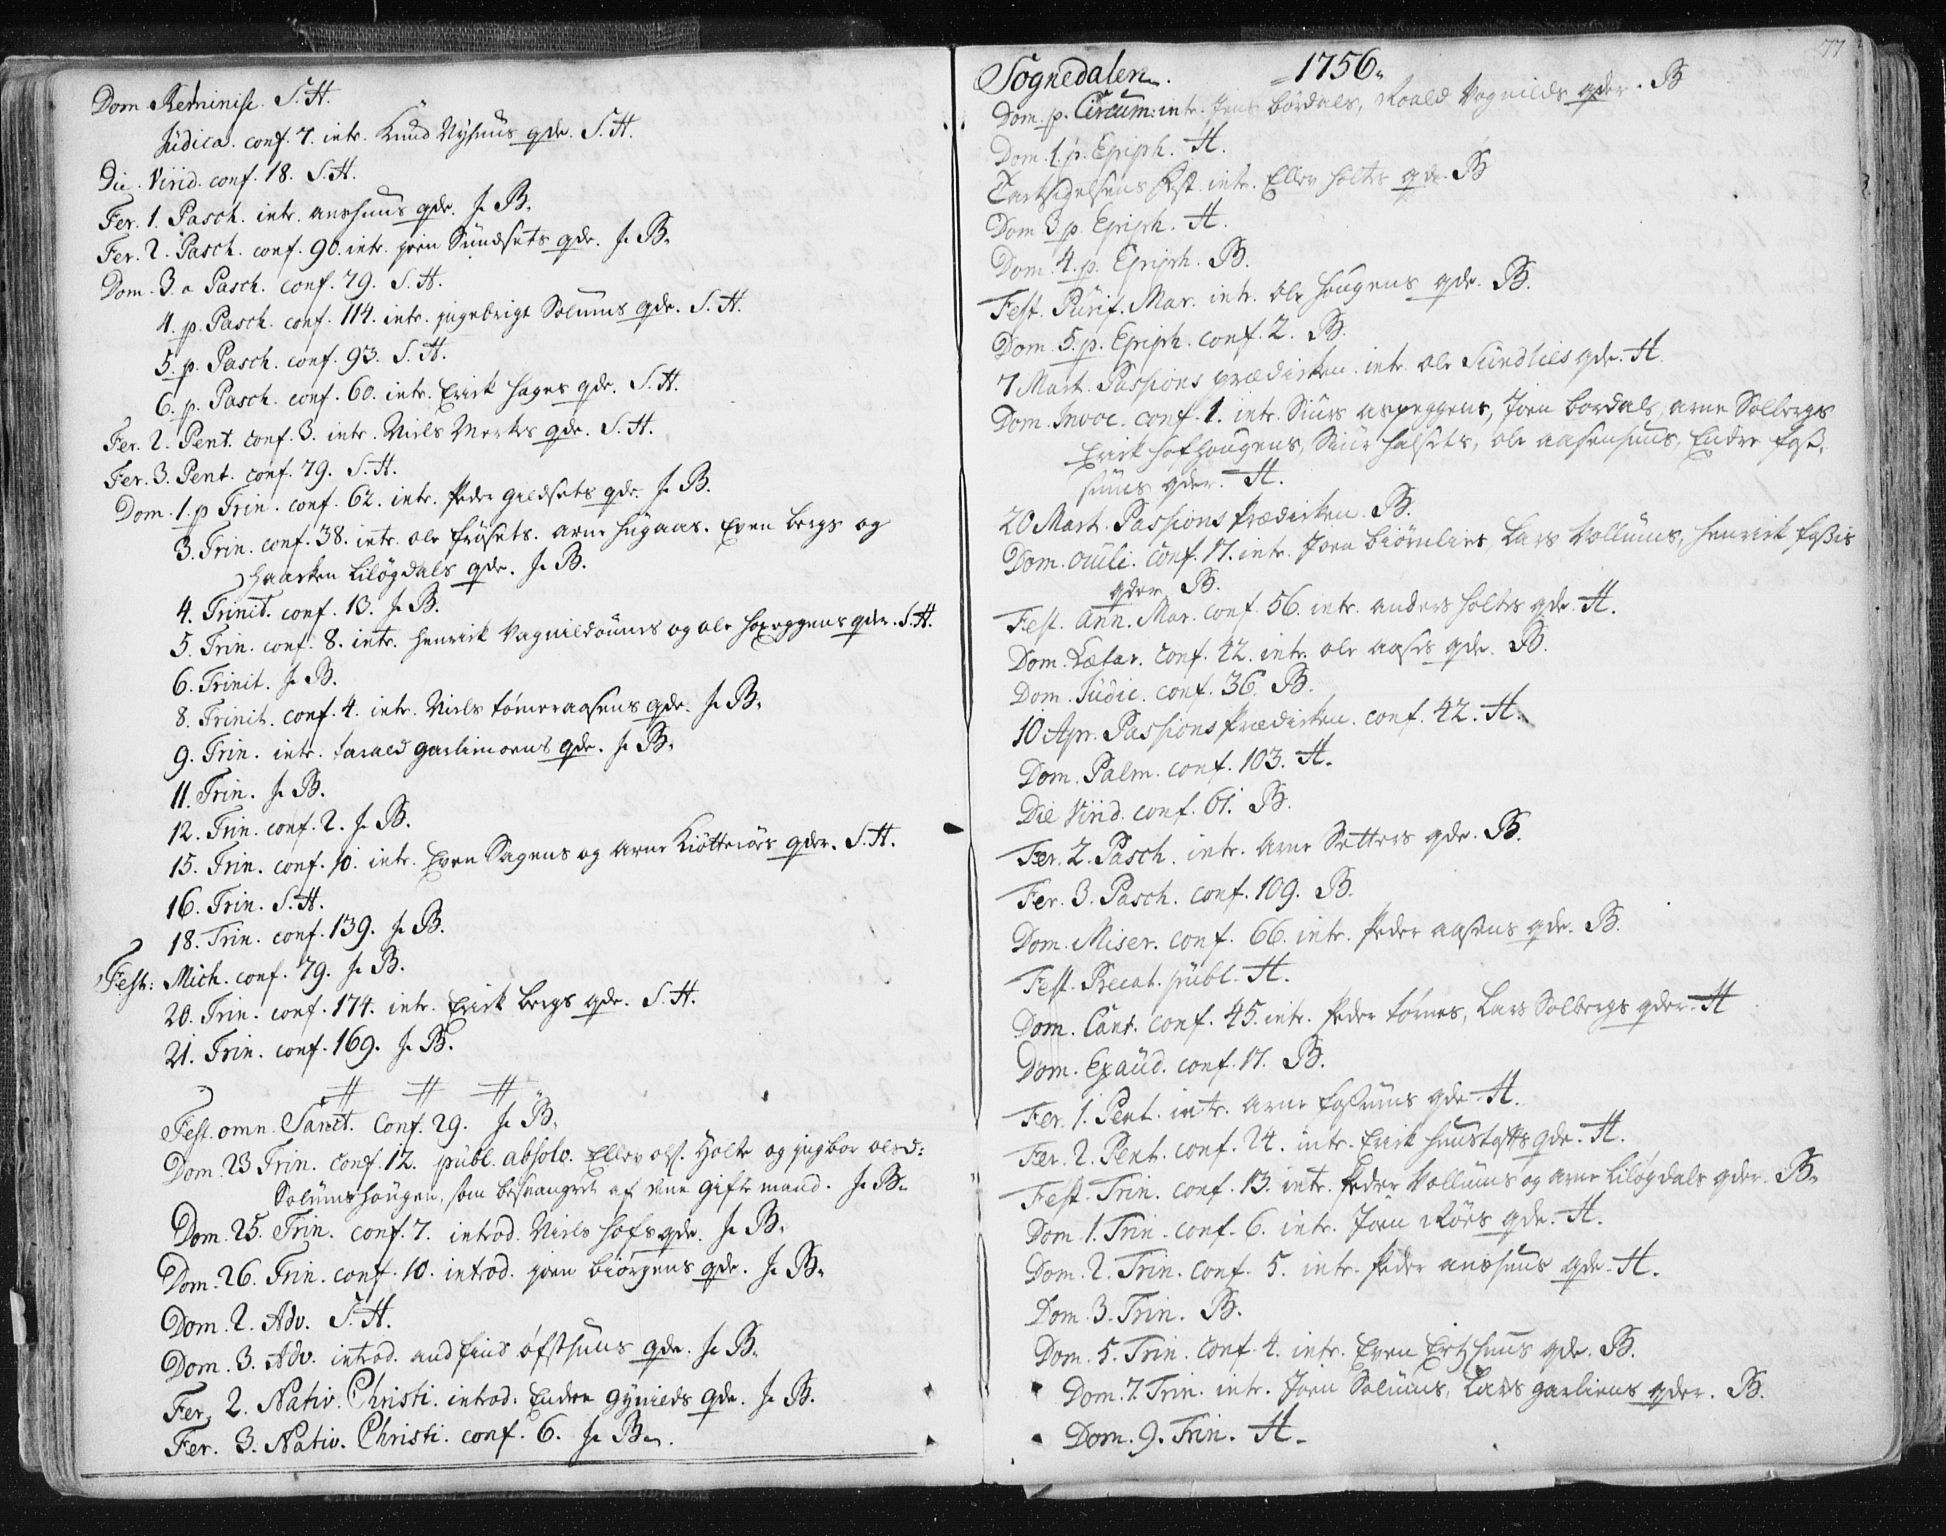 Dom. Reminisc. S. H.
Judica. conf. 7. intr. Knud Nyhuus qde. S. H.
Die. Virid. conf. 18. S. H.
Fer. 1. Pasch. intr. aushuus qde. J. B.
Fer. 2. Pasch. conf. 90. intr. joen Sundsets qde. J. B.
Dom. 3. a Pasch. conf. 79. S. H.
4. p. Pasch. conf. 114. intr. jngebrigt Solums qde. S. H.
5. p. Pasch. conf. 93. S. H.
6. p. Pasch. conf. 60. intr. Erick hages qde. S. H.
Fer. 2. Pent. conf. 3. intr. Niels Merkes qde. S. H.
Fer. 3. Pent. conf. 79. S. H.
Dom. 1. p Trin. conf. 62. intr. Peder gildsets qde. J. B.
3. Trin. conf. 38. intr. ole frösets. arne hugaas. Even bergs og
Haarken Lilögdals qde. J. B.
4. Trinit. conf. 13. J. B.
5. Trin. conf. 8. intr. henrick Vagnildouns og ole hoxeggens qder. S. H.
6. Trinit. J. B.
8. Trinit. conf. 4. intr. Niels tömeraasens qde. J. B.
9. Trin. intr. tarald garlimoens qde. J. B.
11. Trin. J. B.
12. Trin. conf. 2. J. B.
15. Trin. conf. 10. intr. Even Sagens og arne Kiötteröes qder. S. H.
16. Trin. S. H.
18. Trin. conf. 139. J. B.
Fest: Mich. conf. 79. J. B.
20. Trin. conf. 174. intr. Erick bergs qde. S. H.
21. Trin. conf. 169. J. B.
Fest. omn. Sanct. Conf. 29. J. B.
Dom. 23 Trin. Conf. 12. publ. absolv. Ellev ols. Holte og jngbor olsd:
Solumshougen, som besvangret af denne gifte mand. J. B.
Dom. 25. Trin. conf. 7. introd. Niels hofs qde. J. B.
Dom. 26. Trin. conf. 10. introd. joen biörgens qde. J. B.
Dom. 2. Adv. S. H.
Dom. 3. Adv. introd. andfind öfsthuus qde. J. B.
Fer. 2. Nativ. Christi. introd: Endre gynields qde. J. B.
Fer. 3. Nativ. Christi. conf. 6. J. B.
77
Sognedalen. 1756.
Dom. p. Circum: intr. Jens bördals, Roald Vagnilds qder. B
Dom. 1. p. Epiph. H.
Tacksigelsens fest. intr. Ellev holtes qde. B
Dom 3. p. Epiph. H.
Dom. 4. p. Epiph. B.
Fest. Purif. Mar. intr. Ole hougens qde. B.
Dom. 5. p. Epiph. conf. 2. B.
7 Mart. Passions prædicken. intr. ole Sundlies qde. H.
Dom. Invoc. conf. 1. intr. Siurs aspeggens, Joen bordals, arne Solbergs
Erick hofhougens, Siur halsets, ole aasenhuus, Endre foss.
huus qder. H.
20 Mart. Passions Prædicken. B.
Dom. oculi. conf. 17. intr. Joen biörnlies, Lars Vollums, henrick fossis
qder. B.
Fest. Ann. Mar. conf. 56. intr. anders holtes qde. H.
Dom. Lætar. conf. 42. intr. ole aases qde. B.
Dom. Judic. conf. 36. B.
10 Apr. Passions Prædicken. conf. 42. H.
Dom. Palm. conf. 103. H.
Die Virid. conf. 61. B.
Fer. 2. Pasch. intr. Arne Setters qde. B.
Fer. 3. Pasch. conf. 109. B.
Dom. Miser. conf. 66. intr. Peder aasens qde. B.
Fest. Precat. publ. H.
Dom. Cant. conf. 45. intr. Peder törnes, Lars Solbergs qder. H
Dom. Exaud. conf. 17. B.
Fer. 1. Pent. intr. Arne fossums qde. H.
Fer. 2. Pent. conf. 24. intr. Erick huustofts qde. H.
Fest. Trin. conf. 13. intr. Peder Vollums og arne Lilögdals qder. B.
Dom. 1. Trin. conf. 6. intr. Joen Röes qde. H.
Dom. 2. Trin. conf. 5. intr. Peder aushuus qde. H.
Dom. 3. Trin. B.
Dom. 5. Trin. conf. 4. intr. Even Ertzhuus qde. B.
Dom. 7. Trin. intr. Joen Solums, Lars garliens qder. B.
Dom. 9. Trin. H.